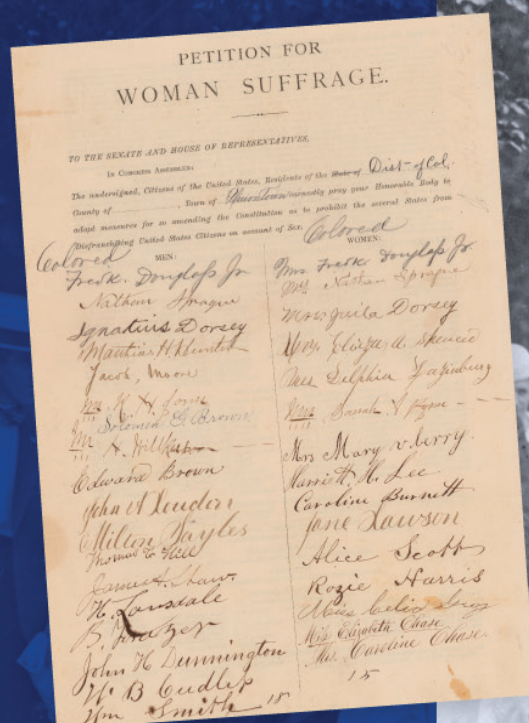 PETITION FOR
WOMAN SUFFRAGE.
TO THE SENATE AND HOUSE OF REPRESENTATIVES,
IN CONGRESS ASSEMBLED:
The undersigned, Citizens of the United States, Residents of the State of Dist of Col.
County of , Town of Uniontown earnestly pray your Honorable Body to
adopt measures for so amending the Constitution as to prohibit the several States from
Disfranchising United States Citizens on account of Sex.
Colored MEN:
Fredk. Douglass Jr
Nathan Sprague
Ignatius Dorsey
H Hunter
Jacob, Moore
Mr H H Jones
Mr Solomon G Brown
A. 
Edward Brown
John A
Milton Sayles
Thomas C Hill
James H. Shaw.
H. Lansdale
B.
John H Dunnington
W B Cudlep
Wm Smith 18
Colored WOMEN:
Mrs Fredk Douglass Jr.
Mrs Nathan Sprague
Mrs Dorsey
Mrs. Eliza A Spencer
Mrs Delphia
Mrs Sarah A
Mrs Mary v. berry.
Harriett H. Lee
Caroline Burnett
Jane Lawson
Alice Scott
Rozie Harris
Miss Celia Gray
Mis Elizabeth Chase
Mrs. Caroline Chase.
15